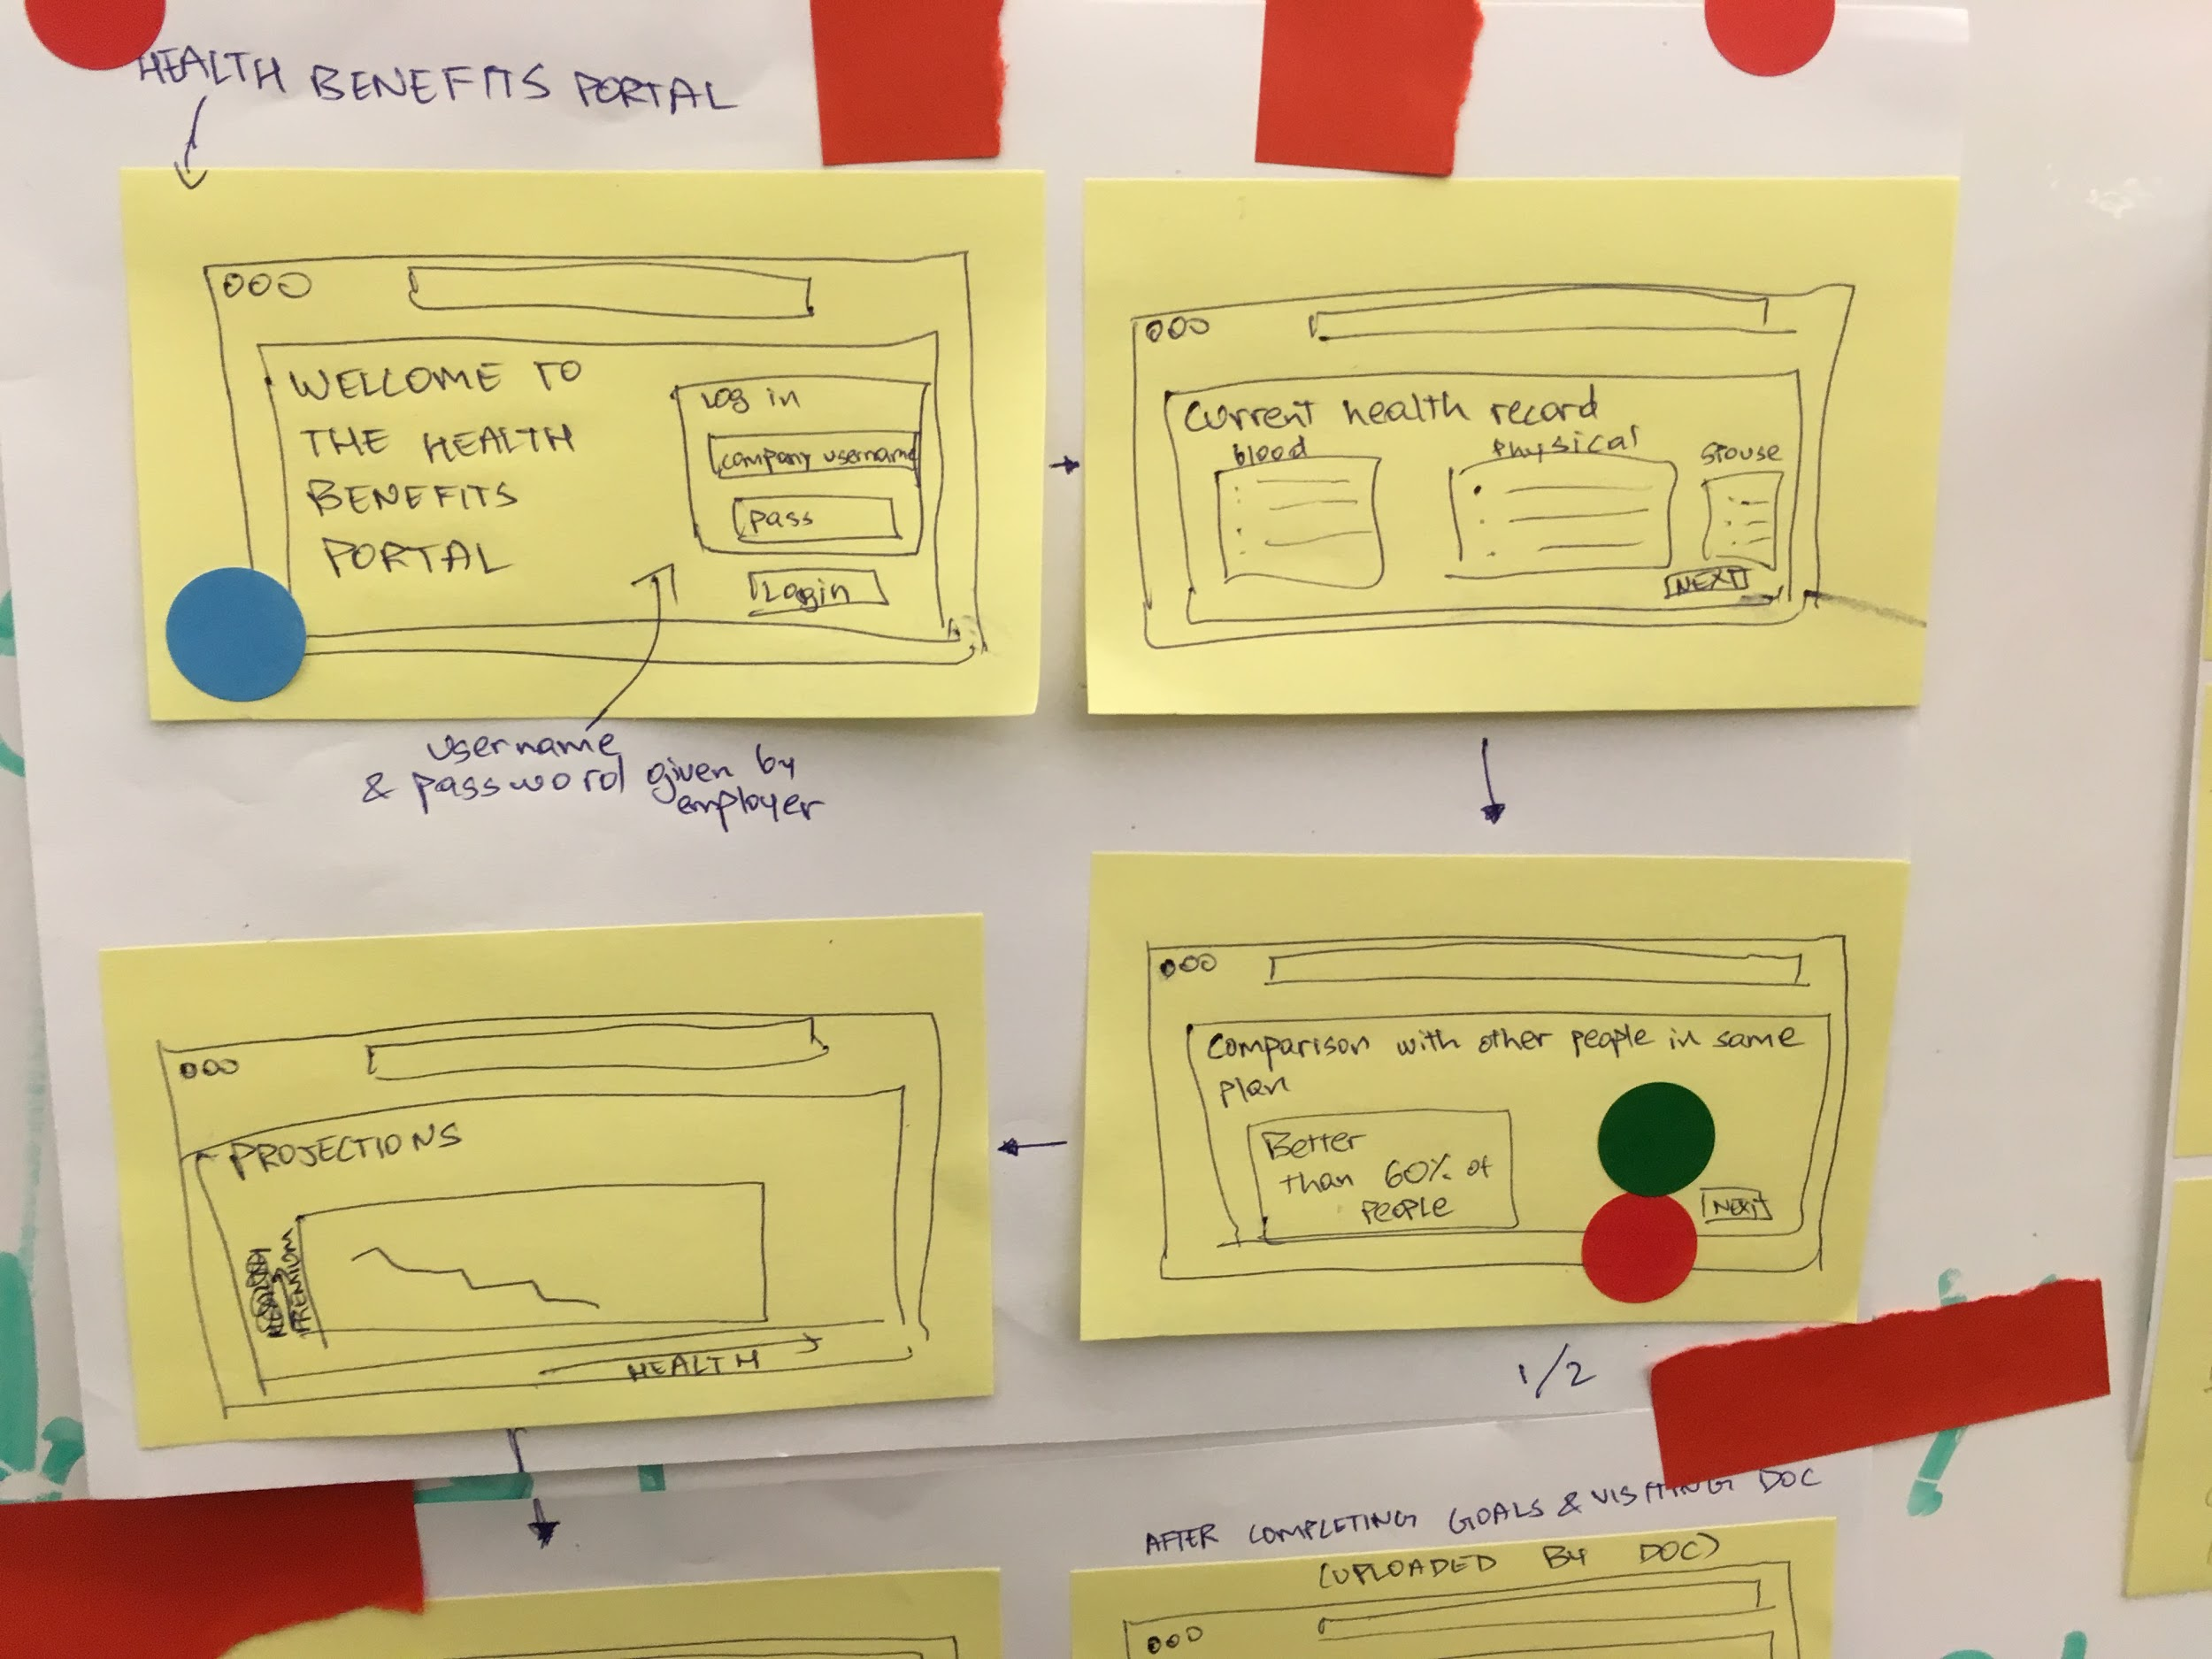 HEALTH BENEFITS PORTAL
WELCOME TO
THE HEALTH
BENEFITS
PORTAL
Log in
company username
pass
Login
username
& password given by
employer
Current health record
blood
Physical
spouse
NEXT
Comparison with other people in same
plan
Better
than 60% of
people
NEXT
1/2
PROJECTIONS
PREMIUM
HEALTH
AFTER COMPLETING GOALS & VISITING DOC
(UPLOADED BY DOC)